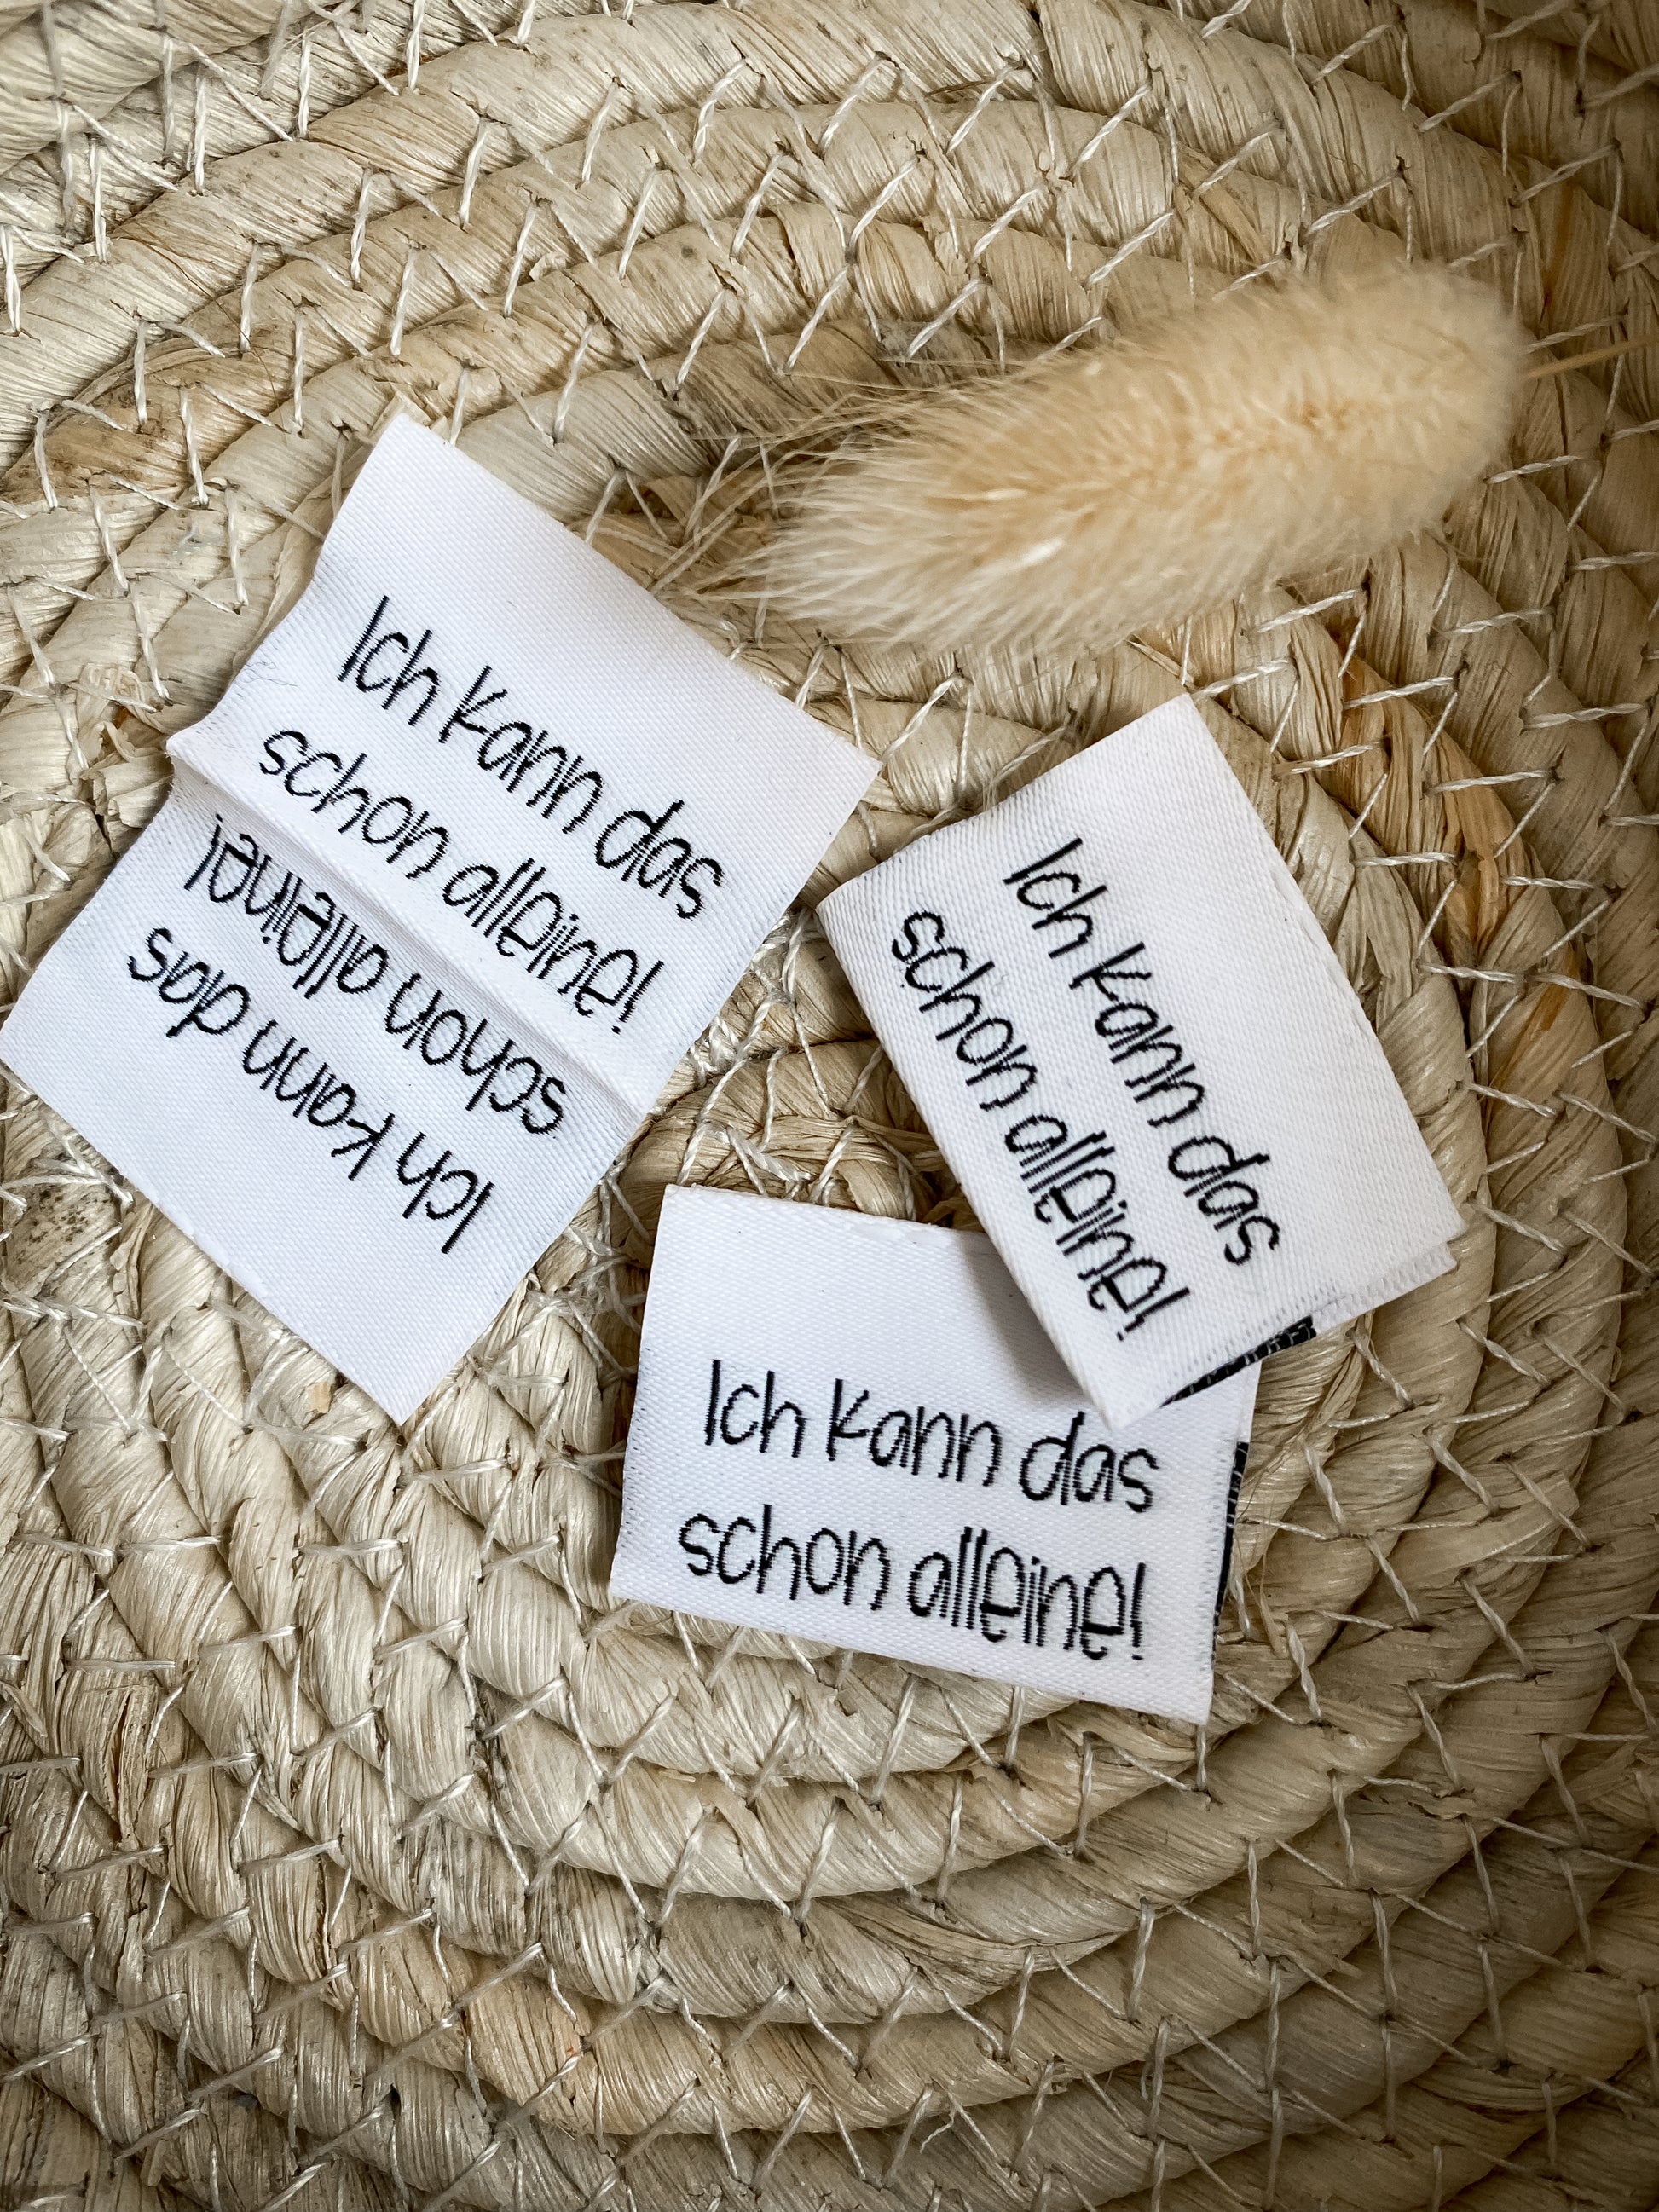 Ich kann das
schon alleine!
schon alleine!
Ich kann das
Ich kann das
schon alleine!
Ich kann das
schon alleine!